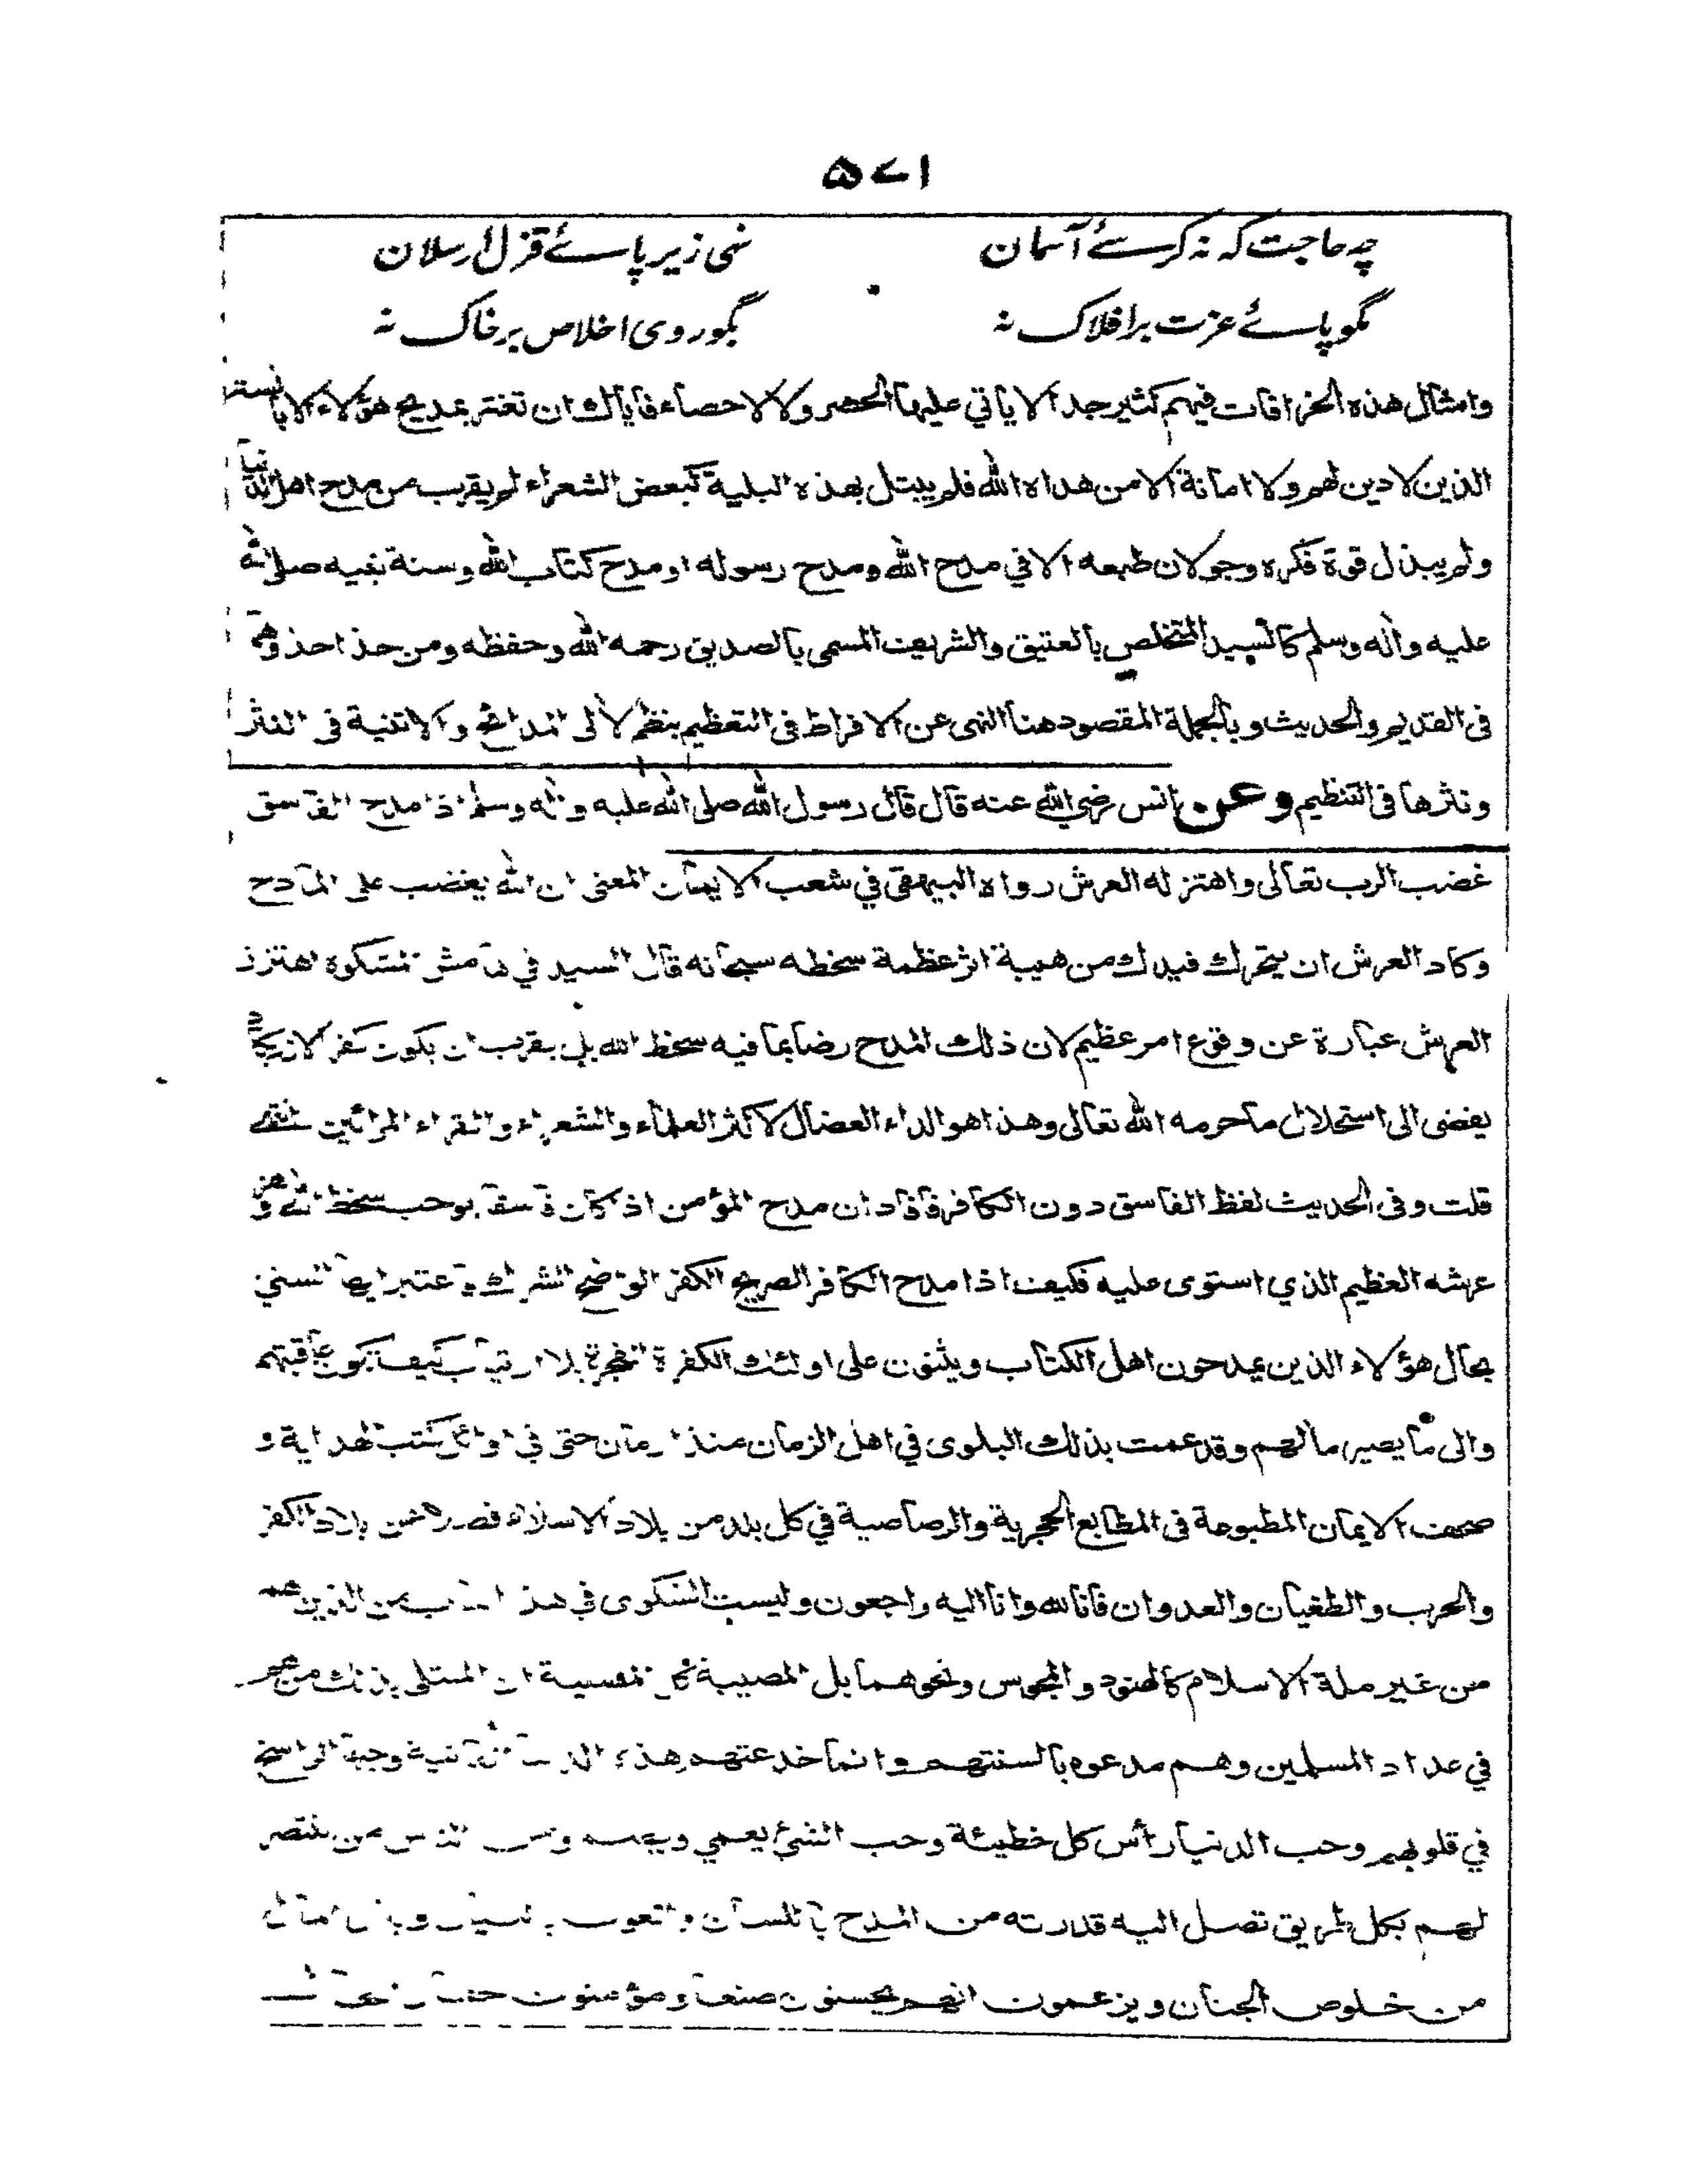 ۵۷۱
چه حاجت که نه کرسئ آسمان نهی زیر پائے قزل ارسلان
مگو پائے عزت بر افلاک نه بگو روی اخلاص بر خاک نه
وامثال هذه الخرافات فيهم كثير جدا لا ياتي عليها الحصر ولا الاحصاء فاياك ان تغتر بمديح هؤلاء
الذين لا دين لهم ولا امانة الا من هداه الله فلم يبتل بهذه البلية كبعض الشعراء لم يقرب من مدح اهل الدنيا
ولم يبذل قوة فكره وجولان طبعه الا في مدح الله ومدح رسوله او مدح كتاب الله وسنة نبيه صلى الله
عليه واله وسلم كالسيد المتخلص بالعتيق والشريف المسمى بالصديق رحمه الله وحفظه ومن حذا حذوهما
فى القديم والحديث وبالجملة المقصود هنا النهى عن الافراط فى التعظيم بنظم لألى المدائح والاثنية فى النثر
ونثرها فى التنظيم وعن انس رضي الله عنه قال قال رسول الله صلى الله عليه واله وسلم اذا مدح الفاسق
غضب الرب تعالى واهتز له العرش رواه البيهقى في شعب الايمان المعنى ان الله يغضب على المادح
وكاد العرش ان يتحرك فيدك من هيبة اثر عظمة سخطه سبحانه قال السيد في هامش المشكوة اهتزاز
العرش عبارة عن وقوع امر عظيم لان ذلك المدح رضا بما فيه سخط الله بل يقرب ان يكون كفرا لانه يكاد
يفضى الى استحلال ما حرمه الله تعالى وهذا هو الداء العضال لاكثر العلماء والشعراء والقراء المرائين انتهى
قلت وفى الحديث لفظ الفاسق دون الكافر فافاد ان مدح المؤمن اذا كان فاسقا يوجب سخط الله وهز
عرشه العظيم الذي استوى عليه فكيف اذا مدح الكافر الصريح الكفر الواضح الشرك فاعتبر ايها السني
بحال هؤلاء الذين يمدحون اهل الكتاب ويثنون على اولئك الكفرة الفجرة بلا ارتياب كيف يكون عاقبتهم
والى ما يصير مالهم وقد عمت بذلك البلوى في اهل الزمان منذ ازمان حتى في اوائل كتب الهداية و
صحف الايمان المطبوعة فى المطابع الحجرية والرصاصية في كل بلد من بلاد الاسلام فضلا عن بلاد الكفر
والحرب والطغيان والعدوان فانا لله وانا اليه راجعون وليست الشكوى في هذا الباب من الذين هم
من غير ملة الاسلام كالهنود والمجوس ونحوهما بل المصيبة كل المصيبة ان المبتلى بذلك من هو
في عداد المسلمين وهم مدعوه بالسنتهم وانما خدعتهم هذه الدنيا الفانية وحبها الراسخ
في قلوبهم وحب الدنيا رأس كل خطيئة وحب الشئ يعمي ويصم ومن الناس من ينتصر
لهم بكل طريق تصل اليه قدرته من المدح باللسان
من خلوص الجنان ويزعمون انهم يحسنون صنعا ومؤمنون